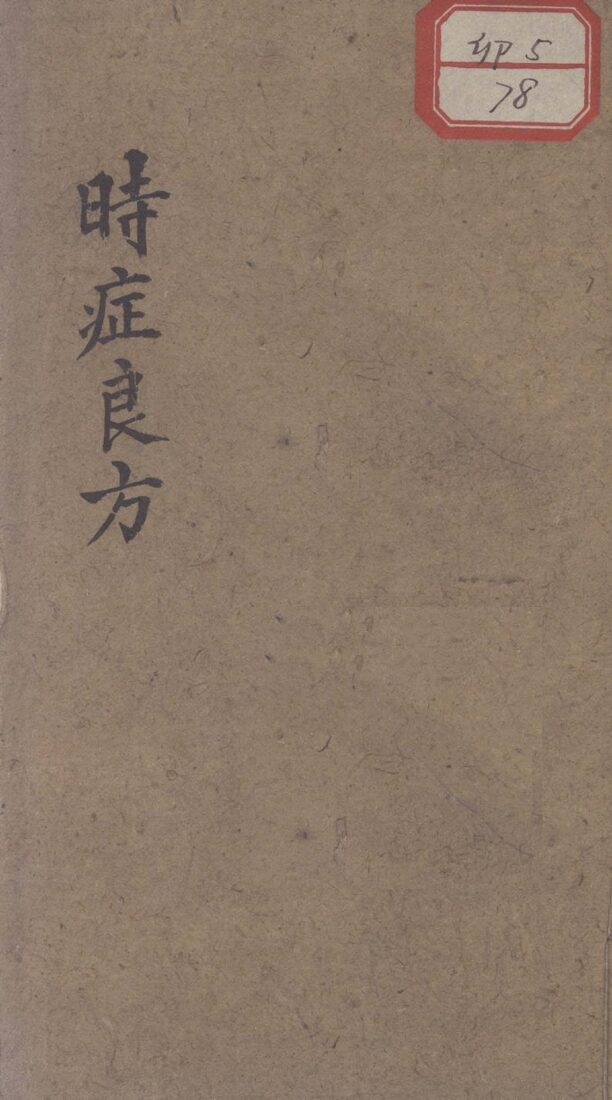 時症良方
印5
78